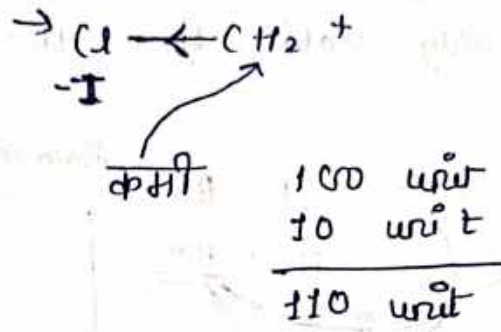 → Cl ← CH2 +
-I
कमी
100 unit
10 unit
110 unit